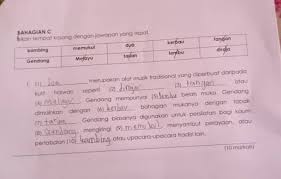 BAHAGIAN C
Isikan tempat kosong dengan jawapan yang tepat.
kambing memukul dua kerbau tangan
Gendang Melayu tarian lembu diraja
1. (1) merupakan alat muzik tradisional yang diperbuat daripada
kulit haiwan seperti (2) (3) tangan
(4) Melayu. Gendang mempunyai (5) lembu belah muka. Gendang
dimainkan dengan (6) kerbau bahagian mukanya dengan tapak
(7) tarian. Gendang biasanya digunakan untuk persilatan bagi kaum
(8) Gendang, mengiringi (9) memukul, menyambut perayaan, atau
pertabalan (10) kambing atau upacara-upacara tradisi lain.
(10 markah)